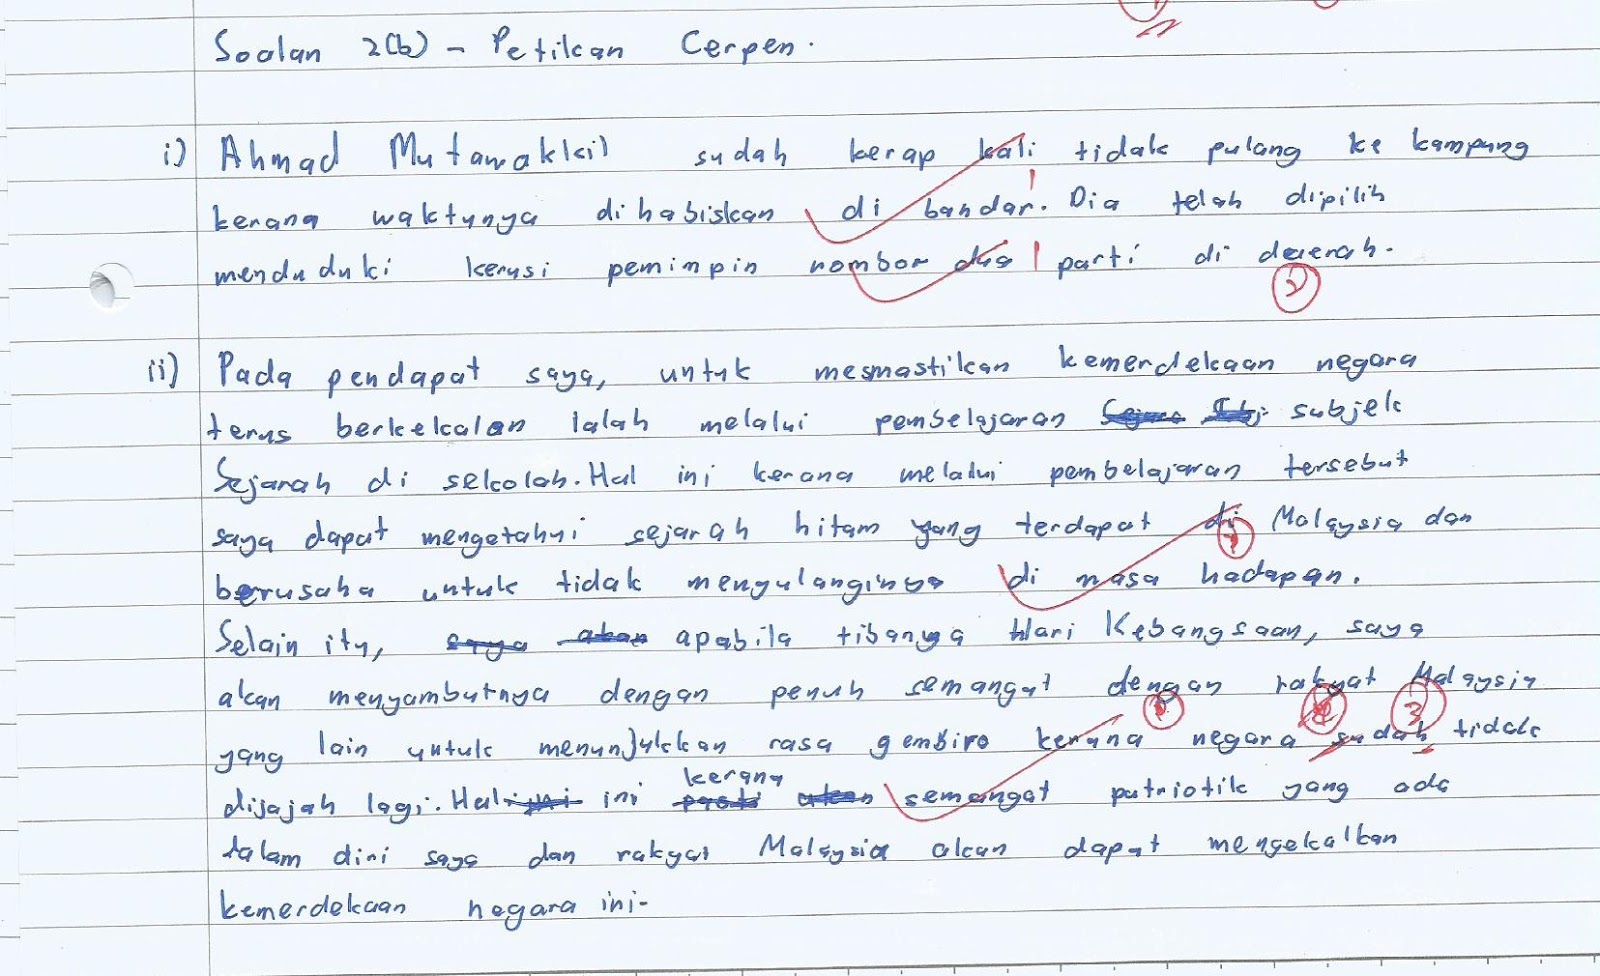 Soalan 2(b) - Petikan Cerpen.
i) Ahmad Mutawakkil sudah kerap kali tidak pulang ke kampung
kerana waktunya dihabiskan di bandar. Dia telah dipilih
menduduki kerusi pemimpin nombor dua parti di daerah.
2
ii) Pada pendapat saya, untuk memastikan kemerdekaan negara
terus berkekalan ialah melalui pembelajaran subjek
Sejarah di sekolah. Hal ini kerana melalui pembelajaran tersebut
saya dapat mengetahui sejarah hitam yang terdapat di Malaysia dan
berusaha untuk tidak mengulanginya di masa hadapan.
Selain itu, saya akan apabila tibanya Hari Kebangsaan, saya
akan menyambutnya dengan penuh semangat dengan rakyat Malaysia
3
yang lain untuk menunjukkan rasa gembira kerana negara sudah tidak
dijajah lagi. Hal ini kerana semangat patriotik yang ada
dalam diri saya dan rakyat Malaysia akan dapat mengekalkan
kemerdekaan negara ini.